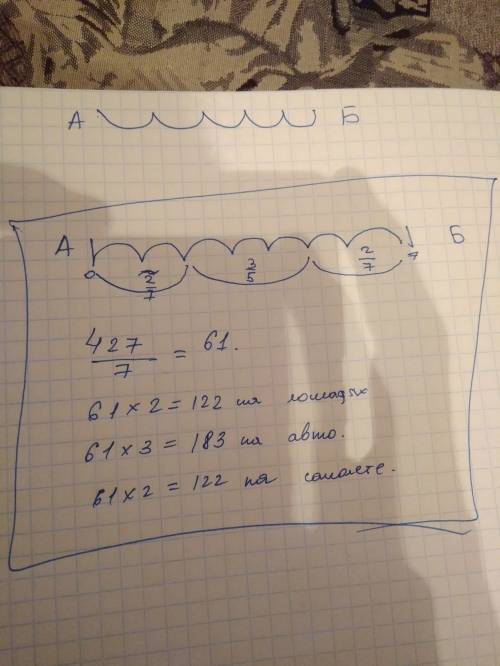 А Б
А Б
0 2/7 3/5 2/7 7
427/7 = 61.
61 × 2 = 122 на лошадях
61 × 3 = 183 на авто.
61 × 2 = 122 на самолете.